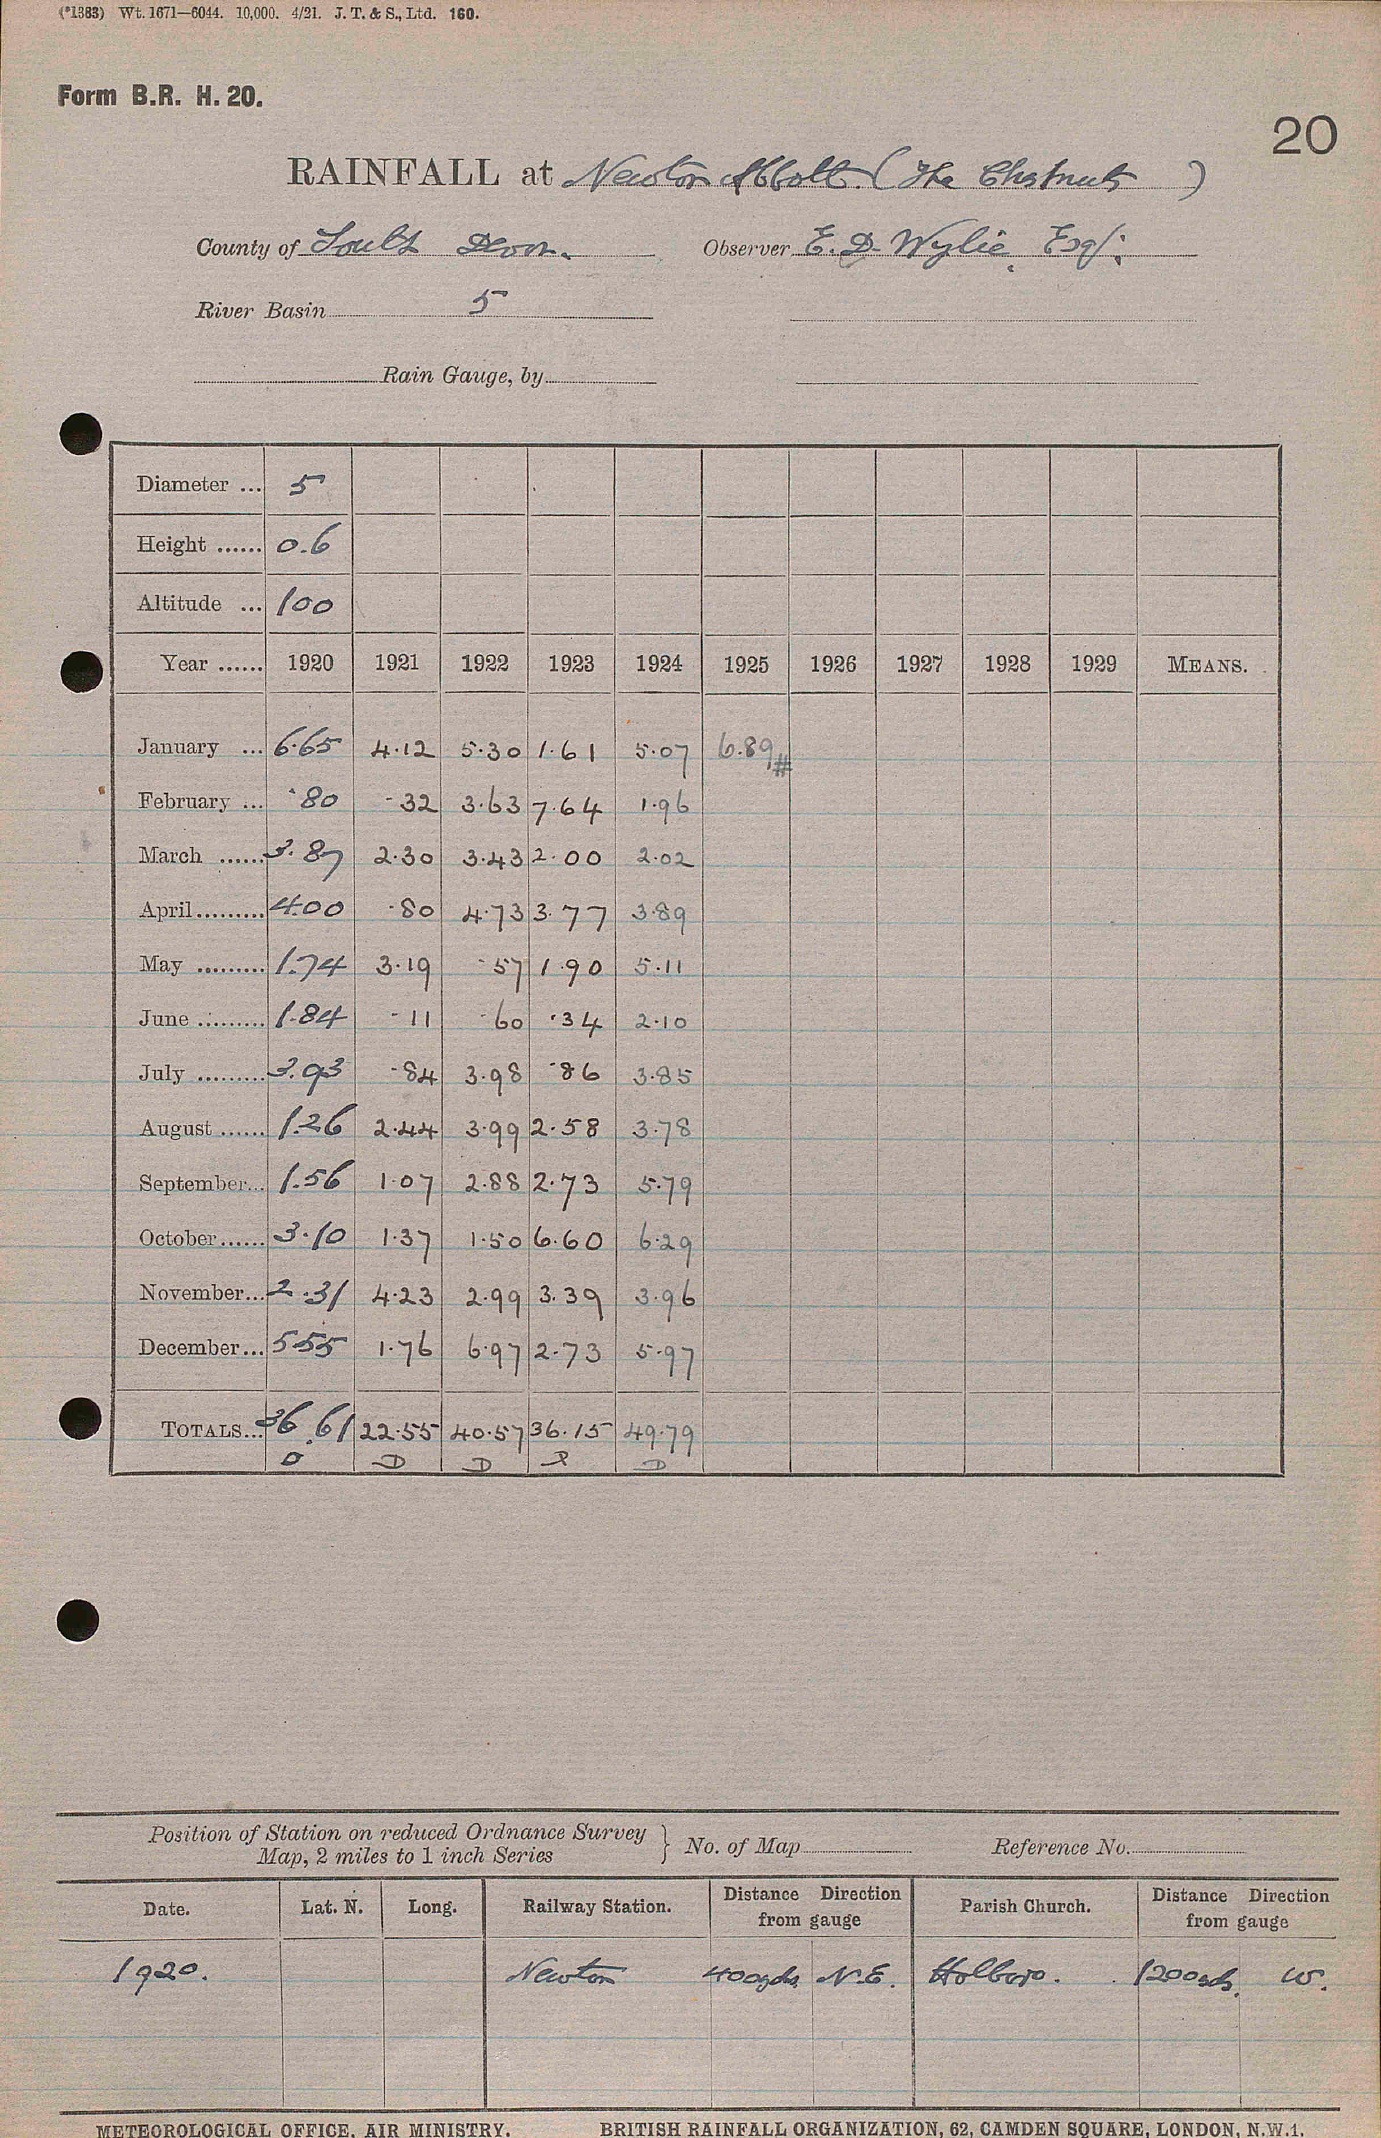 (*1383) Wt. 1671—6044. 10,000. 4/21. J. T. & S., Ltd. 160.
Form B.R. H. 20.
20
RAINFALL at Newton Abbott. (The Chestnuts )
County of South Devon. Observer E. D. Wylie, Esq:
River Basin 5
Rain Gauge, by
Diameter ... 5
Height ...... 0.6
Altitude ... 100
Year ...... 1920 1921 1922 1923 1924 1925 1926 1927 1928 1929 MEANS.
January ... 6.65 4.12 5.30 1.61 5.07 6.89#
February ... .80 .32 3.63 7.64 1.96
March ...... 3.87 2.30 3.43 2.00 2.02
April ......... 4.00 .80 4.73 3.77 3.89
May ......... 1.74 3.19 .57 1.90 5.11
June ......... 1.84 .11 .60 .34 2.10
July ......... 3.93 .84 3.98 .86 3.85
August ...... 1.26 2.44 3.99 2.58 3.78
September... 1.56 1.07 2.88 2.73 5.79
October ...... 3.10 1.37 1.50 6.60 6.29
November... 2.31 4.23 2.99 3.39 3.96
December... 5.55 1.76 6.97 2.73 5.97
TOTALS... 36.61 22.55 40.57 36.15 49.79
D D D
Position of Station on reduced Ordnance Survey
Map, 2 miles to 1 inch Series } No. of Map Reference No.
Date. Lat. N. Long. Railway Station. Distance Direction from gauge Parish Church. Distance Direction from gauge
1920. Newton 400yds. N.E. 1200yds. W.
METEOROLOGICAL OFFICE, AIR MINISTRY. BRITISH RAINFALL ORGANIZATION, 62, CAMDEN SQUARE, LONDON, N.W.1.